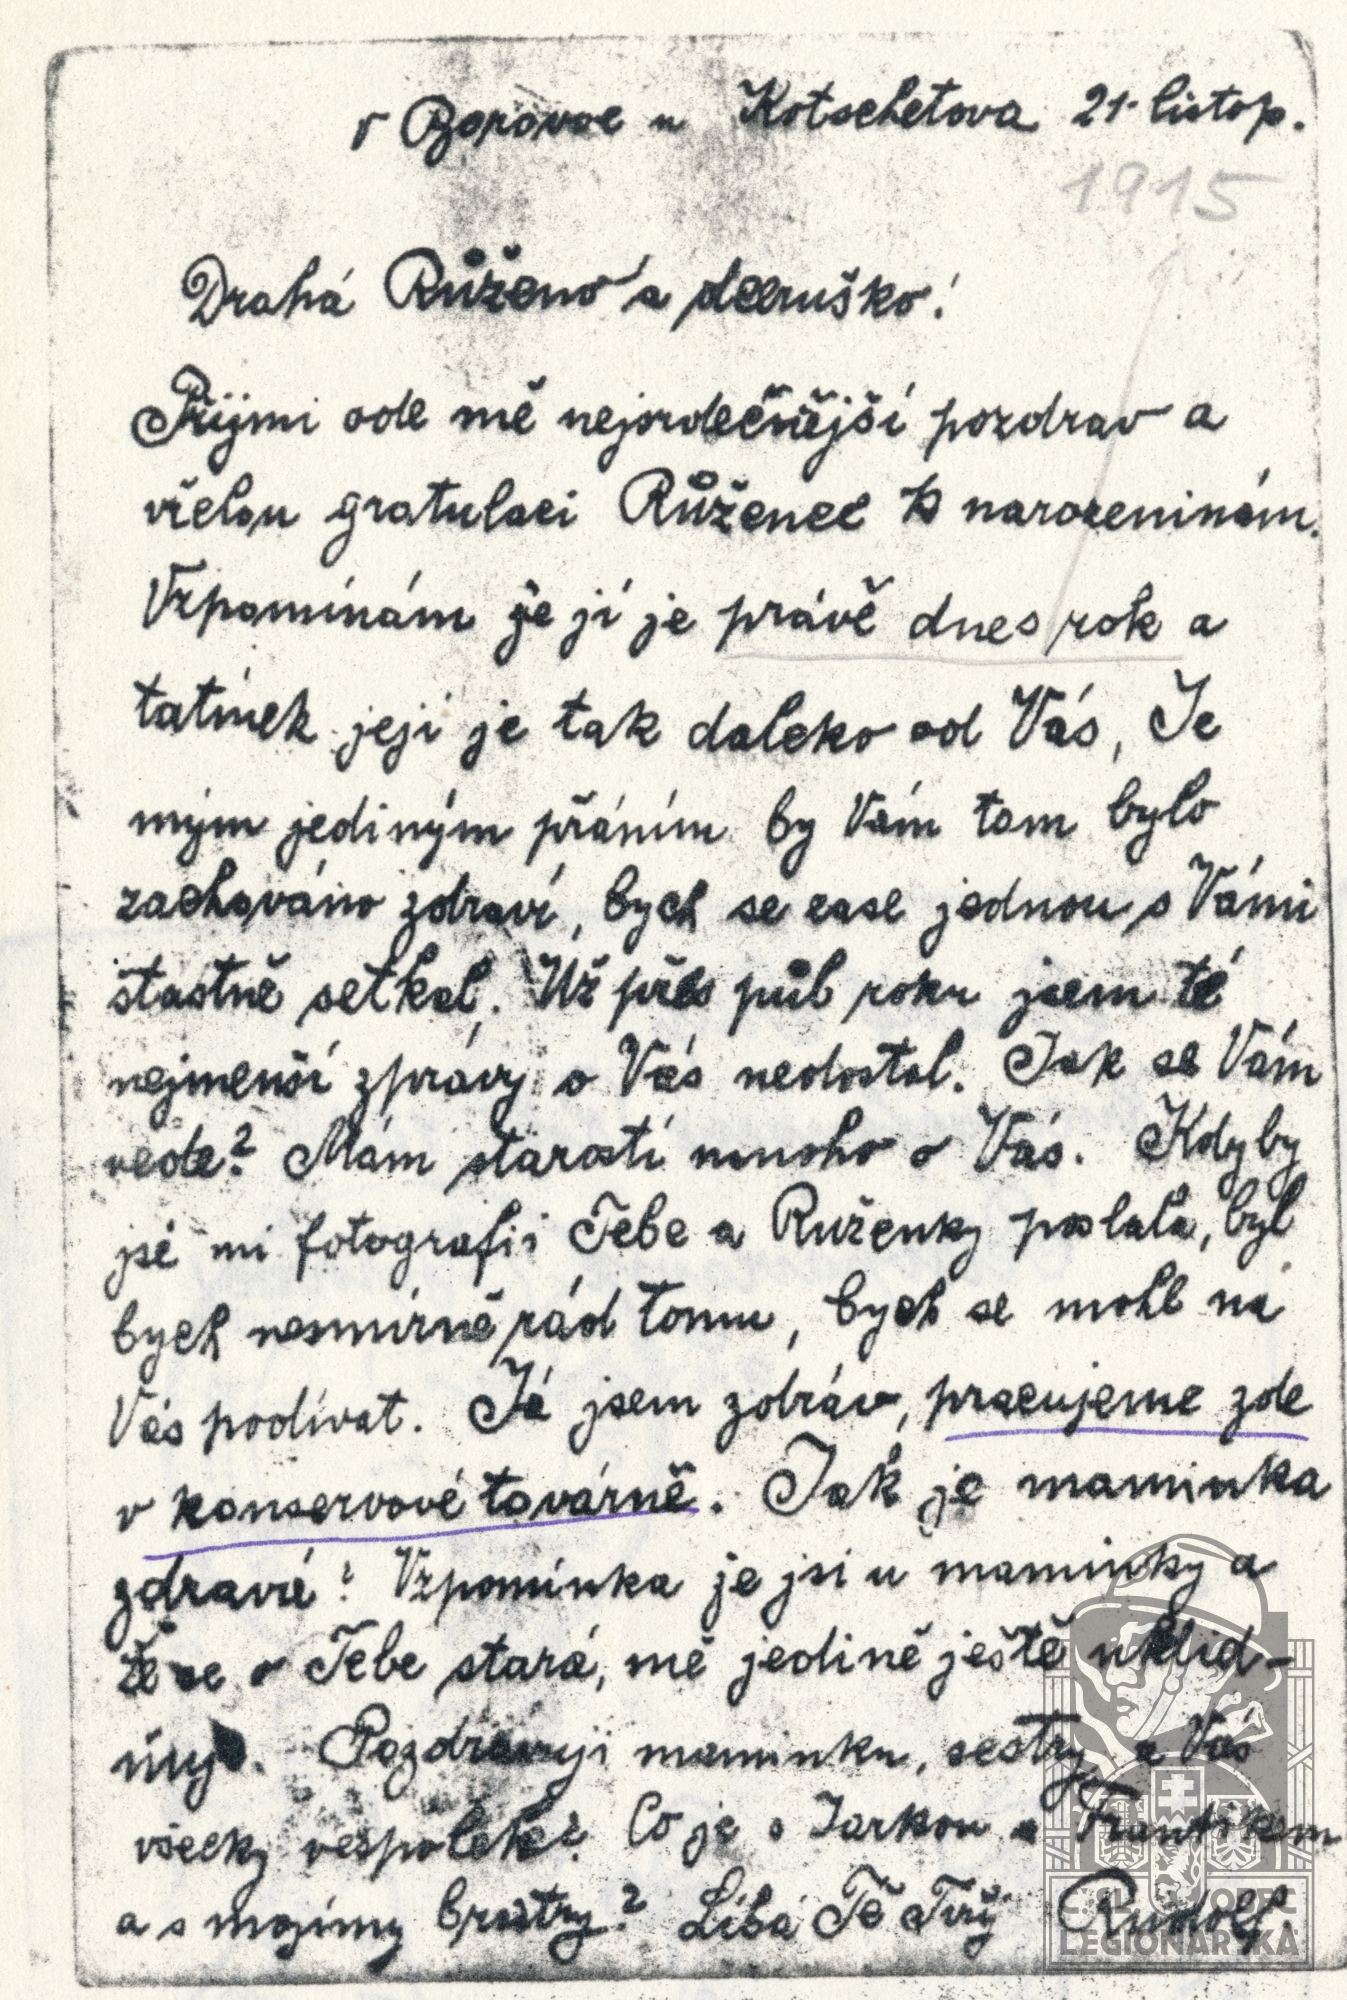 v Borovoe u Kotschetova 21. listop.
1915
Drahá Růženo a dceruško!
Přijmi ode mě nejsrdečnější pozdrav a
vřelou gratulaci Růžence k narozeninám.
Vzpomínám že jí je právě dnes rok a
tatínek její je tak daleko od Vás, Je
mým jediným přáním by Vám tam bylo
zachováno zdraví, bych se zase jednou s Vámi
štastně setkal. Už přes půl roku jsem té
nejmenší zprávy o Vás nedostal. Jak se Vám
vede? Mám starostí mnoho o Vás. Kdyby
jsi mi fotografii Tebe a Ruženky poslala, byl
bych nesmírně rád tomu, bych se mohl na
Vás podívat. Já jsem zdráv, pracujeme zde
v konservové továrně. Jak je maminka
zdravá? Vzpomínka že jsi u maminky a
že se o Tebe stará, mě jedině ještě uklid-
ňuje. Pozdravuji maminku, sestry a Vás
všecky vespolek. Co je s Jarkou a Frantíkem
a s mojimy bratry? Líbá Tě Tvůj Rudolf.
ČS. OBEC
LEGIONÁŘSKÁ